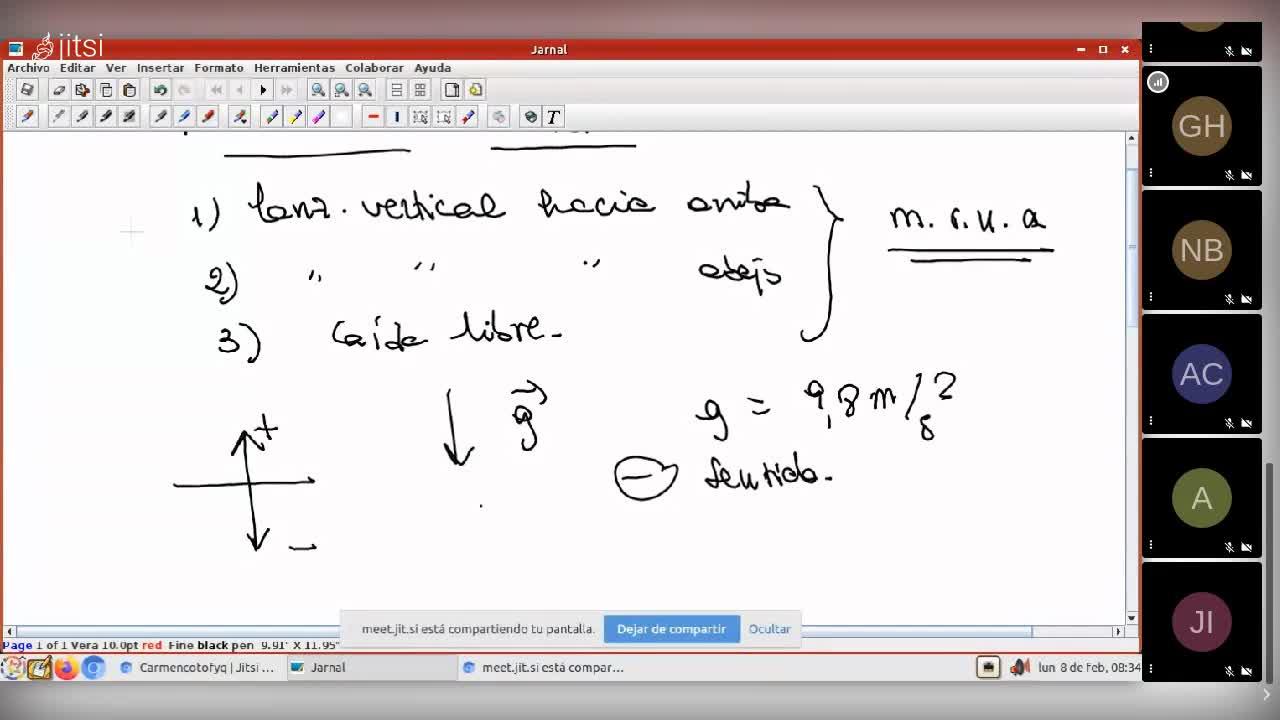 jitsi
Jarnal
Archivo Editar Ver Insertar Formato Herramientas Colaborar Ayuda
1) lanz. vertical hacia arriba
m.r.u.a
2) " " " abajo
3) Caída libre.
g
g = 9,8 m/s2
+
− sentido.
−
GH
NB
AC
A
JI
meet.jit.si está compartiendo tu pantalla. Dejar de compartir Ocultar
Page 1 of 1 Vera 10.0pt red Fine black pen 9.91" X 11.95"
Carmencotofyq | Jitsi ... Jarnal meet.jit.si está compar... lun 8 de feb, 08:34